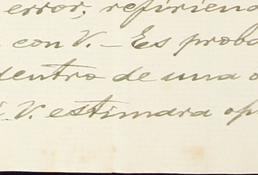 error, refirien
con V. – Es proba
dentro de una o
V. estimara op